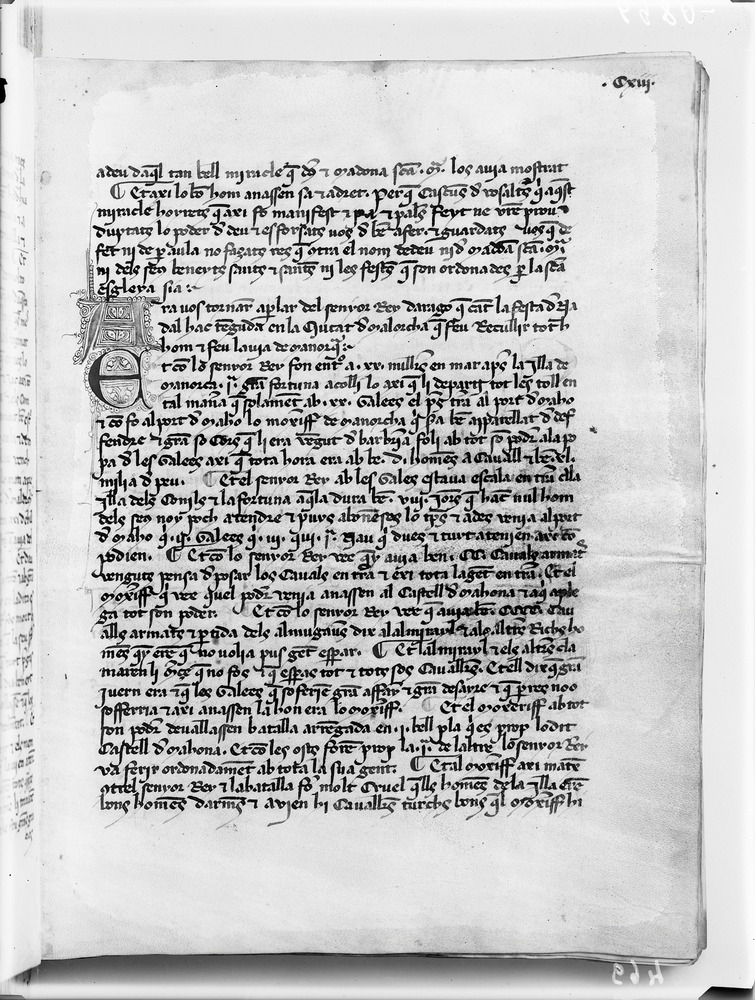 · Cxiij ·
a deu daql̄ tan bell miracle q̄ d's & madona sc̄a .m̄. los auia mostrat
¶ Et axi lo bō hom anassen sa & adret. Perq̄ Cascūs d' vosaltrs q̄ aq̄st
miracle hoyrets q̄ axi fo manifest &
duptats lo poder d' deu & esforsats vos d' bē afer. & guardats vos q̄ de
fet ni de paula no façats res q̄ ctra el nom dedeu ni d' madōa sc̄a m̄
ni dels seus beneyts sants & santes ni les festes q̄ son ordonades p̄ la sc̄a
esgleya sia :~
Ara vos tornar aparlar del senyor Rey darago q̄ cāt la festa d' Na
dal hac tēguda en la Ciutat d' Malorcha q̄ feu Recullir toth
hom & feu la via de Manorq̄ :~
Et cō lo senyor Rey fon entor a .xx. milles en mar aps la Illa de
Manorca .jª. grā fortuna acolli lo axi q̄ li departi tot les toll en
tal maña q̄ solamēt ab .xx. Galees el ps̄ trā al port d' maho
& cō fo al port d' maho lo moxiff de manorcha q̄ s̄ha bē appatellat d' def
fendre & grā socors q̄ li era vēgut d' barbria foli ab tot so podr̄ a la po
pa d' les Galees axi q̄ tota hora era ab bē .D. homēs a Cauall & bē .xl.
milia d' peu. ¶ Et el senyor Rey ab les Gales estaua escala en trā ala
Illa dels Conils & la fortuna aq̄la dura bē .viij. jors q̄ hāc nul hom
dels seus noy poch atendre & puys abonēsos lo tp̄s & ades venia al port
d' maho
podien. ¶ Et cō lo senyor Rey vee q̄ y auia ben .CC. Cauals armat
venguts pensa d' posar los Cauals en trā & exi tota la gēt en trā. Et el
moxiff q̄ vee quel podr̄ venia anassen al Castell d' mahona & aq̄ aple
ga tot son poder. Et cō lo senyor Rey vee q̄ auia bē .CCCC. Cau
alls armats & p̄tida dels almugauers dix al almirayl & alo altrs Richs ho
mēs q̄ y eren q̄ no volia pus gēt esper. ¶ Et lalmirayl & els altrs cla
marenli mc̄e q̄ no fos & q̄ esperas tot & tots sos Caualles. Et ell dix q̄ grā
juern era & q̄ les Galees q̄ sofferiē grā affay & grā desayre & q̄ p̄ res noo
sofferria & axi anassen la hon era lo moxiff. Et el moxeriff ab tot
son podr̄ deuallassen batalla arrēgada en .j. bell pla q̄ es prop lo dit
Castell d' mahona. Et cō les osts forē prop la .jª. de laltre lo senyor Rey
va ferir ordonadamēt ab tota la sua gent. ¶ Et al moxiff axi mateix
cttel senyor Rey & la batalla fo molt Cruel q̄ els homēs de la Illa erē
bons homēs darmes & auien hi Cauallrs turchs bons q̄l moxiff hi